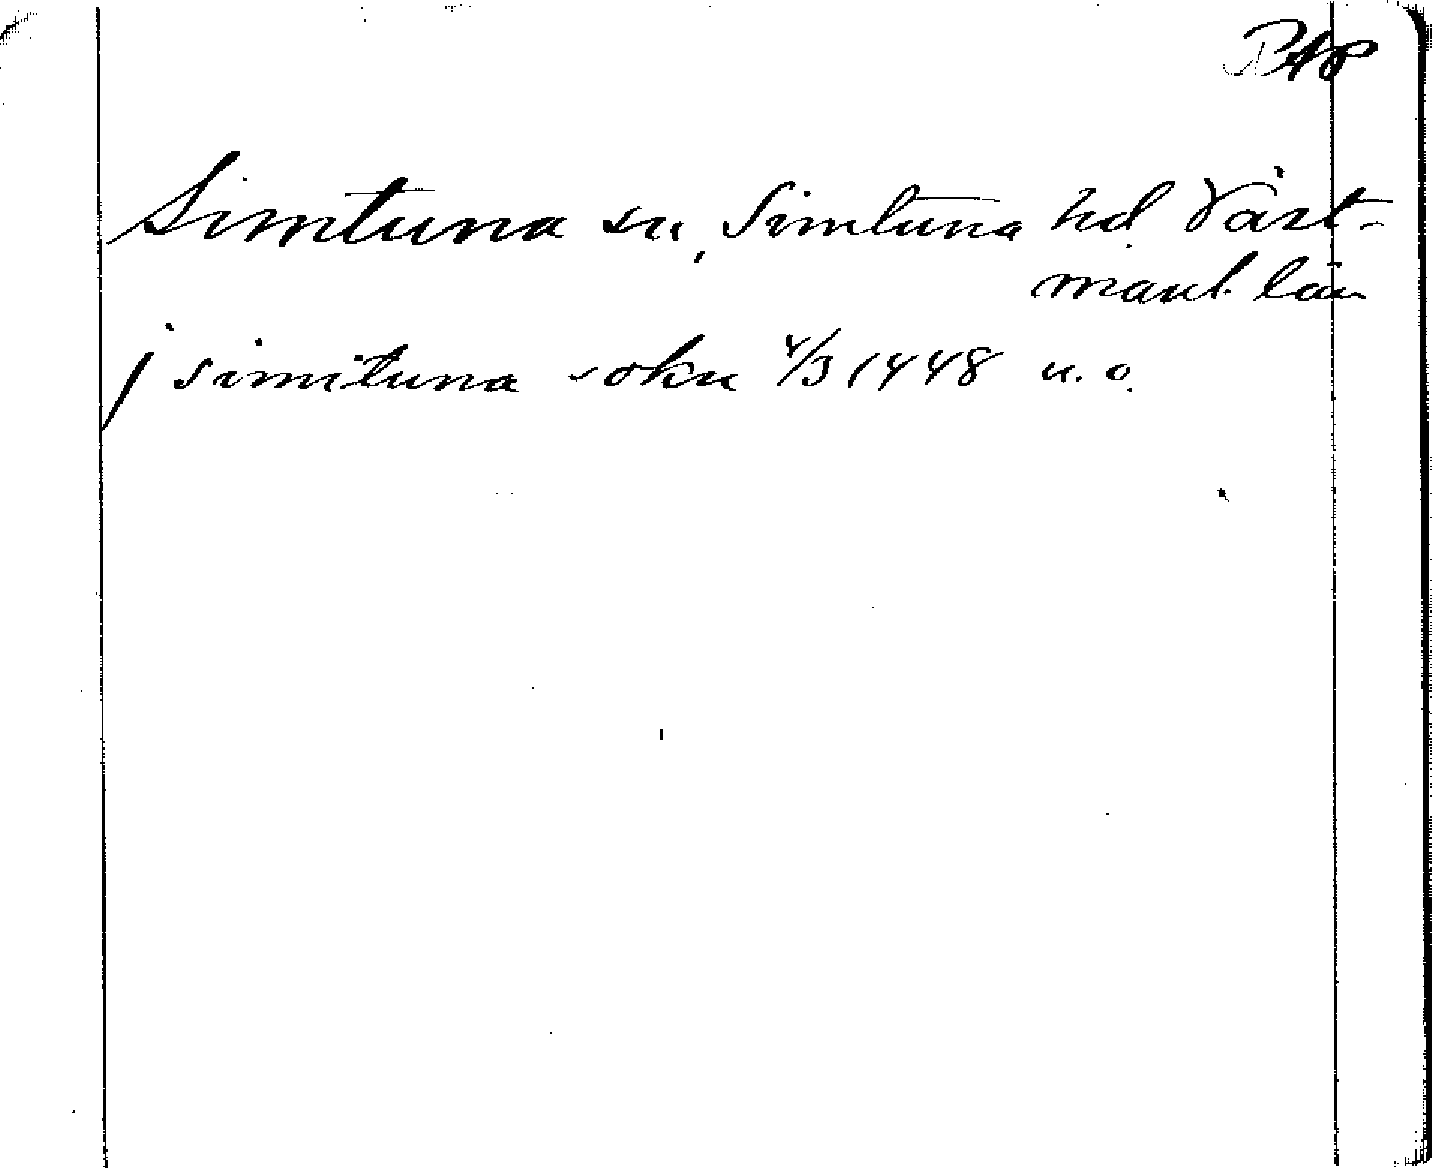 Simtuna sn, Simtuna hd Väst-
manl. län
j simituna sokn 4/3 1448 u. o.